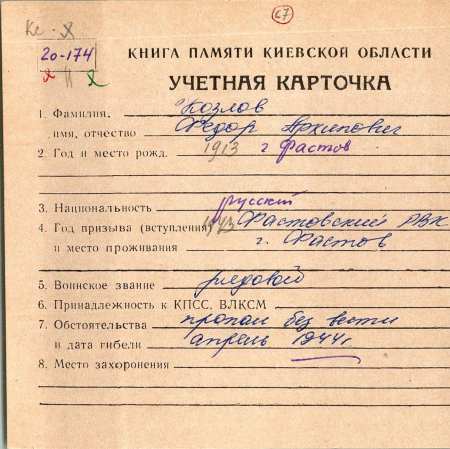 с7
Кс - х
20-174
КНИГА ПАМЯТИ КИЕВСКОЙ ОБЛАСТИ
УЧЕТНАЯ КАРТОЧКА
1. Фамилия, Козлов
имя, отчество Федор Архипович
2. Год и место рожд. 1913 г Фастов
3. Национальность русский
4. Год призыва (вступления) 1943 Фастовский РВК
и место проживания г. Фастов
5. Воинское звание рядовой
6. Принадлежность к КПСС. ВЛКСМ
7. Обстоятельства пропал без вести
и дата гибели апрель 1944г
8. Место захоронения